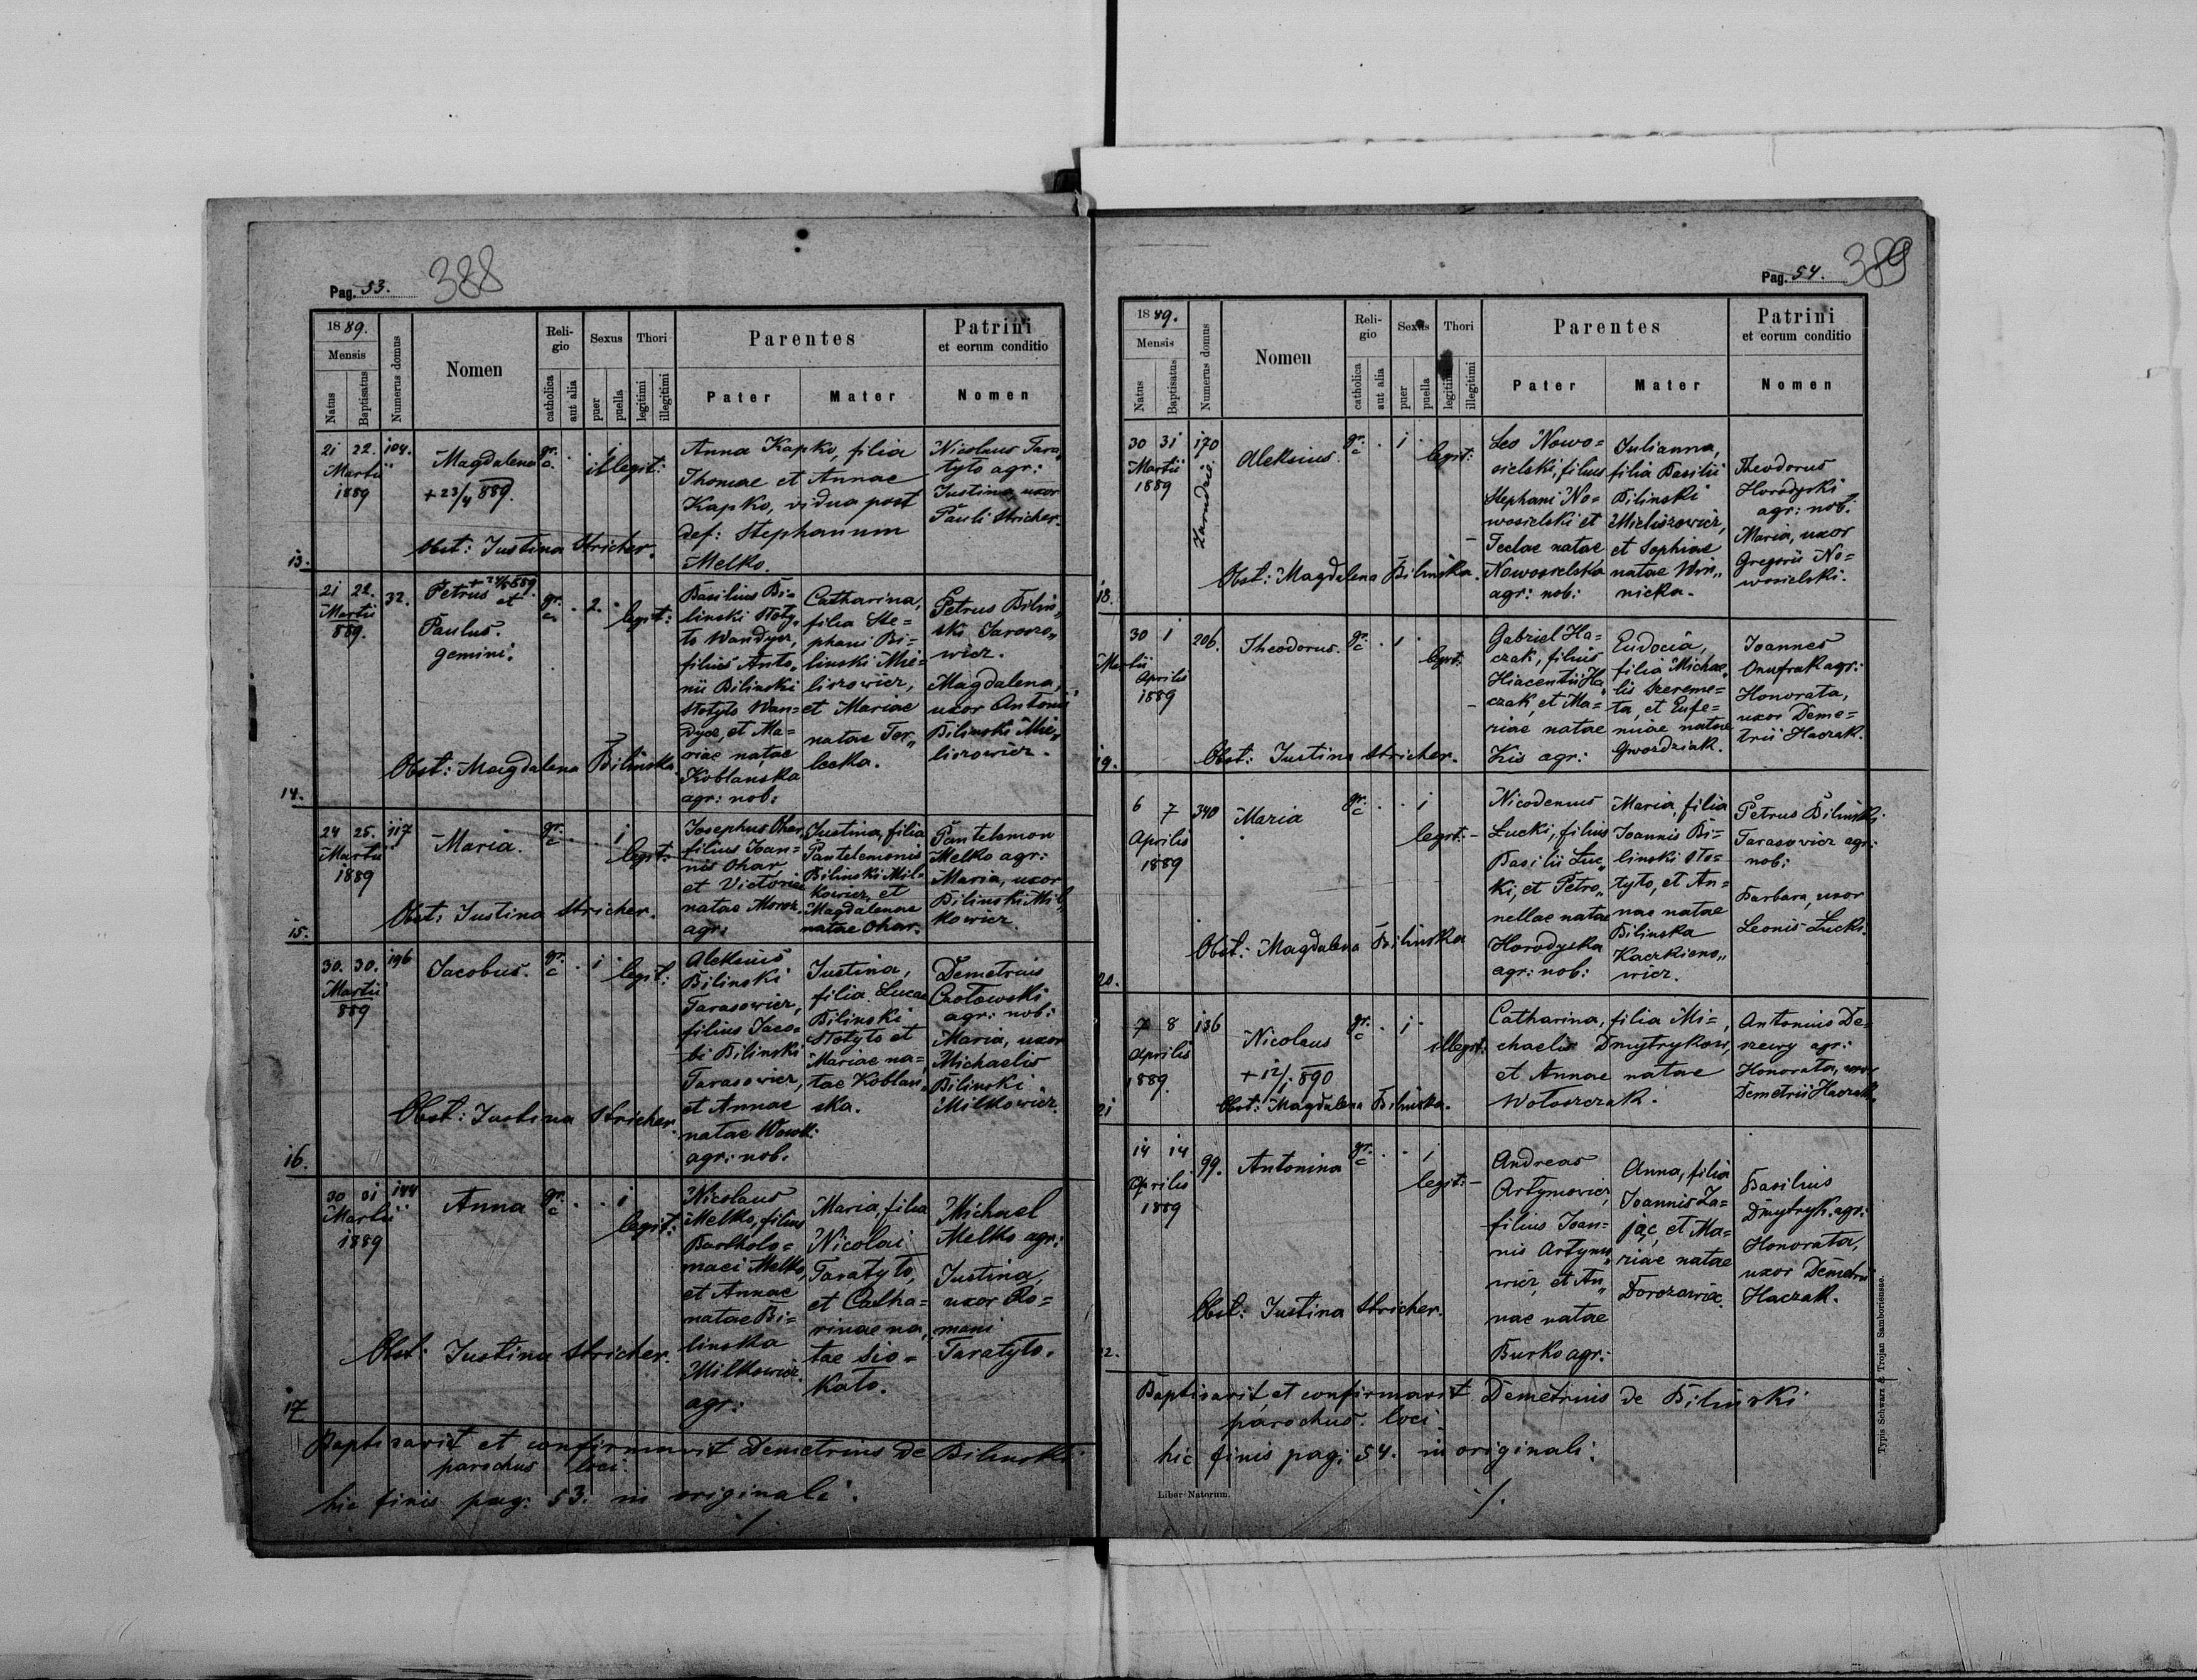 Pag. 53.
388
1889.
Mensis
Natus
Baptisatus
Numerus domus
Nomen
Reli-
gio
catholica
aut alia
Sexus
puer
puella
Thori
legitimi
illegitimi
Parentes
Pater
Mater
Patrini
et eorum conditio
Nomen
13.
21 22. 104.
Martii
1889
Magdalena
+ 23/4 889.
gr.
c.
1
illegit:
Anna Kapko, filia
Thomae et Annae
Kapko, vidua post
def: Stephanum
Melko.
Nicolaus Tara„
tyto agr:
Justina, uxor
Pauli Stricher.
Obst: Justina Stricher.
14.
21 22. 32.
Martii
889.
Petrus
et
Paulus.
gemini.
gr.
c.
2.
legit:
Basilius Bi-
linski Stoty„
to Wandycz,
filius Anto„
nii Bilinski
Stotyto Wan=
dycz, et Ma=
riae natae
Koblanska
agr: nob:
Catharina,
filia Ste=
phani Bi-
linski Mie-
liszowicz,
et Mariae
natae Ter„
lecka.
Petrus Bilin„
ski Jaroszo„
wicz.
Magdalena,
uxor Antonii
Bilinski Mie„
liszowicz.
Obst: Magdalena Bilinska
15.
24 25. 117
Martii
1889
Maria.
gr.
c
1
legit:
Josephus Ohar,
filius Joan=
nis Ohar
et Victoriae
natae Moroz.
agr:
Justina, filia
Pantelemonis
Bilinski Mil=
kowicz, et
Magdalenae
natae Ohar.
Pantelemon
Melko agr:
Maria, uxor
Bilinski Mil„
kowicz.
Obst: Justina Stricher.
16.
30. 30. 196
Martii
889
Jacobus.
gr.
c
1
legit:
Aleksius
Bilinski
Tarasowicz,
filius Jaco=
bi Bilinski
Tarasowicz,
et Annae
natae Wowk:
agr: nob.
Justina,
filia Lucae
Bilinski
Stotyto et
Mariae na=
tae Koblan„
ska.
Demetrius
Czołowski
agr: nob:
Maria, uxor
Michaelis
Bilinski
Milkowicz.
Obst: Justina Stricher.
17
30 31 144
Martii
1889
Anna
gr.
c
1
legit:
Nicolaus
Melko, filius
Bartholo=
maei Melko,
et Annae
natae Bi=
linska
Milkowicz.
agr:
Maria, filia
Nicolai
Taratyto,
et Catha=
rinae na„
tae Sio=
kato.
Michael
Melko agr:
Justina,
uxor Ro=
mani
Taratyto.
Obst: Justina Stricher.
Baptisavit et confirmavit Demetrius de Bilinski
parochus loci.
hic finis pag: 53. in originali.
Pag. 54.
389
1889.
Mensis
Natus
Baptisatus
Numerus domus
Nomen
Reli-
gio
catholica
aut alia
Sexus
puer
puella
Thori
legitimi
illegitimi
Parentes
Pater
Mater
Patrini
et eorum conditio
Nomen
18.
30 31 170
Martii
1889
Zarudzie:
Aleksius.
gr.
c
1
legit:
Leo Nowo=
sielski, filius
Stephani No=
wosielski et
Teclae natae
Nowosielska
agr: nob:
Julianna,
filia Basilii
Bilinski
Mieliszowicz,
et Sophiae
natae Win„
nicka.
Theodorus
Horodyski
agr: nob:
Maria, uxor
Gregorii No=
wosielski.
Obst: Magdalena Bilinska.
19.
30 1 206.
Martii
Aprilis
1889
Theodorus.
gr.
c
1
legit:
Gabriel Ha=
czak, filius
Hiacentii Ha„
czak, et Ma=
riae natae
Kis agr:
Eudocia,
filia Michae„
lis Szereme=
ta, et Eufe=
miae natae
Gwozdziak.
Joannes
Onufrak agr:
Honorata,
uxor Deme=
trii Haczak.
Obst: Justina Stricher.
20.
6 7 340
Aprilis
1889
Maria
gr.
c
1
legit:
Nicodemus
Łucki, filius
Basilii Łuc„
ki, et Petro„
nellae natae
Horodyska
agr: nob:
Maria, filia
Joannis Bi=
linski Sto=
tyto, et An=
nae natae
Bilinska
Kaczkieno„
wicz.
Petrus Bilinski
Tarasowicz agr:
nob:
Barbara, uxor
Leonis Łucki.
Obst: Magdalena Bilinska
21
7 8 136
Aprilis
1889.
Nicolaus
+ 12/1 890
gr.
c
1
illegit:
Catharina, filia Mi=
chaelis Dmytrykow,
et Annae natae
Wołoszczak.
Antonius De=
szewy agr:
Honorata, uxor
Demetrii Haczak.
Obst: Magdalena Bilinska.
22.
14 14 99.
Aprilis
1889
Antonina
gr.
c
1
legit:
Andreas
Artymowicz,
filius Joan=
nis Artymo„
wicz, et An„
nae natae
Burko agr:
Anna, filia
Joannis Za=
jąc, et Ma=
riae natae
Dorozowiec.
Basilius
Dmytryk. agr:
Honorata,
uxor Demetrii
Haczak.
Obst: Justina Stricher.
Baptisavit et confirmavit Demetrius de Bilinski
parochus loci
hic finis pag: 54. in originali:
Liber Natorum.
Typis Schwarz & Trojan Samboriense.